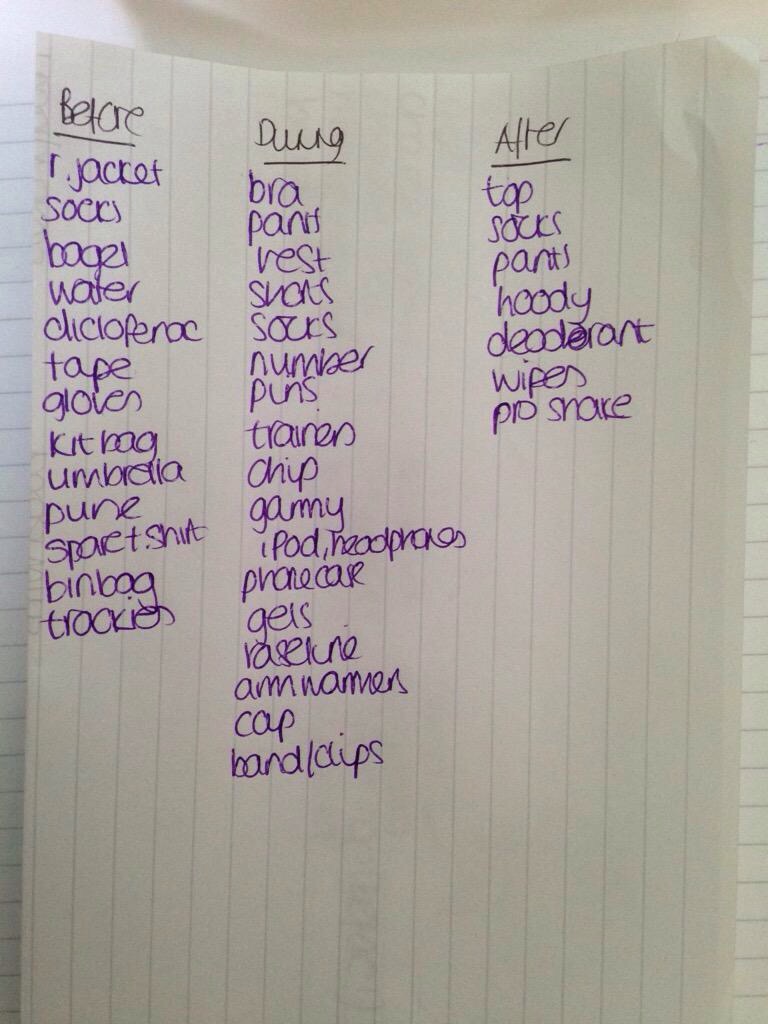 Before
r.jacket
socks
bagel
water
diclofenac
tape
gloves
kit bag
umbrella
purse
spare t.shirt
binbag
trackies
During
bra
pants
vest
shorts
socks
number
pins
trainers
chip
garmy
iPod, headphones
phone case
gels
vaseline
arm warmers
cap
band/clips
After
top
socks
pants
hoody
deoderant
wipes
pro shake